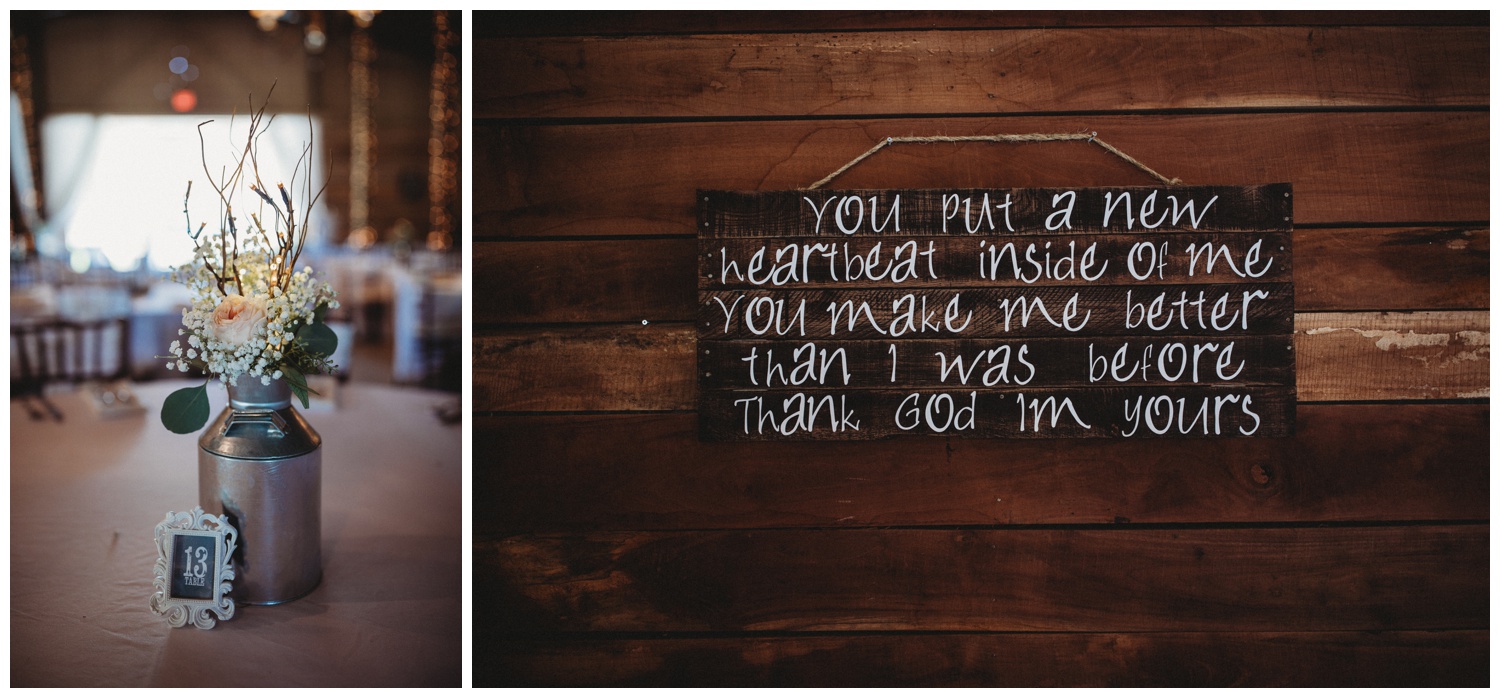 13
TABLE
YOU put a new
heartbeat inside of me
YOU make me better
than I was before
Thank God Im yours